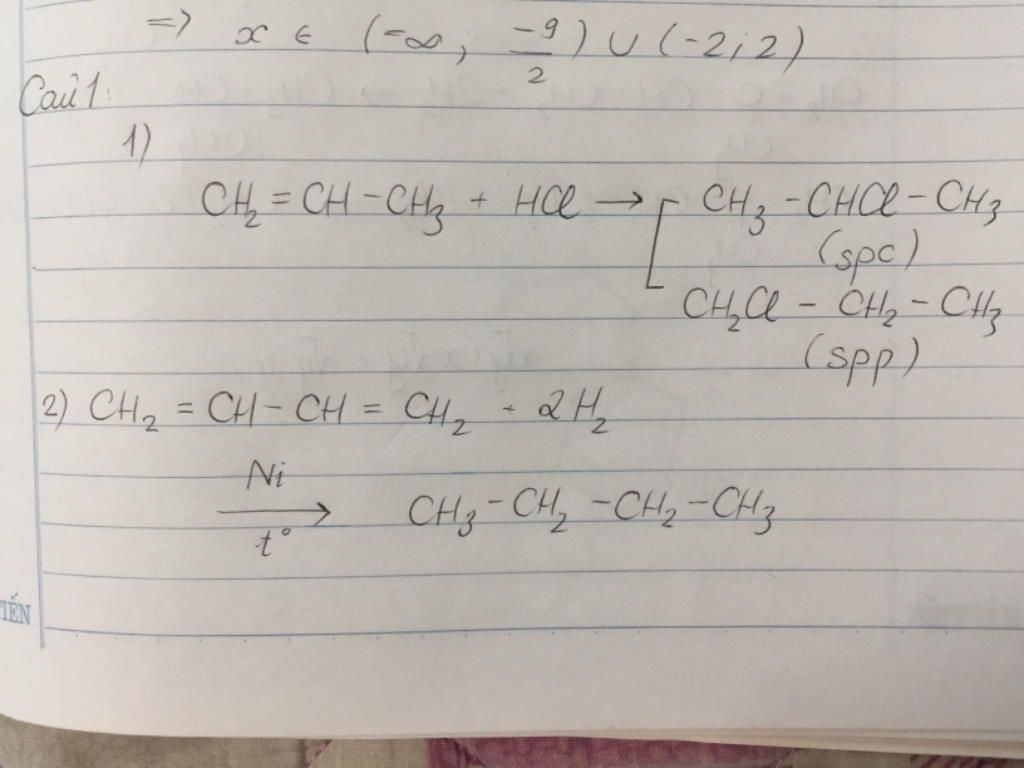 => x ∈ (-∞; -9/2) ∪ (-2; 2)
Câu 1:
1)
CH₂ = CH - CH₃ + HCl → [ CH₃ - CHCl - CH₃
(spc)
CH₂Cl - CH₂ - CH₃
(spp)
2) CH₂ = CH - CH = CH₂ + 2H₂
Ni
→ CH₃ - CH₂ - CH₂ - CH₃
t°
TIẾN